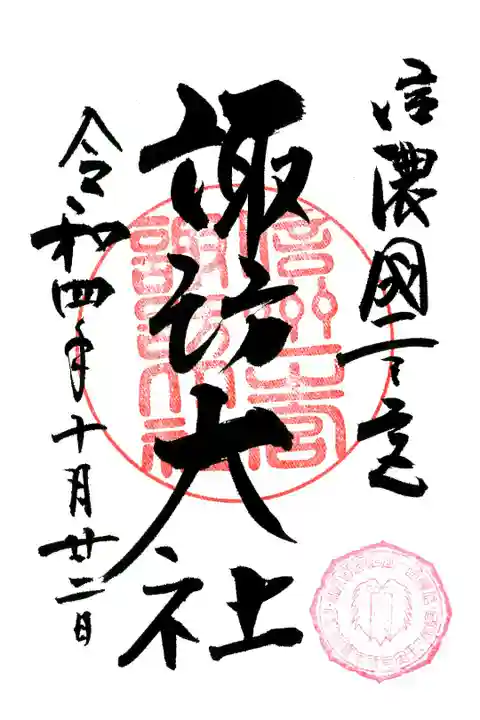 信濃國一之宮
諏訪大社
令和四年十月廿二日
信州一宮
諏訪大社